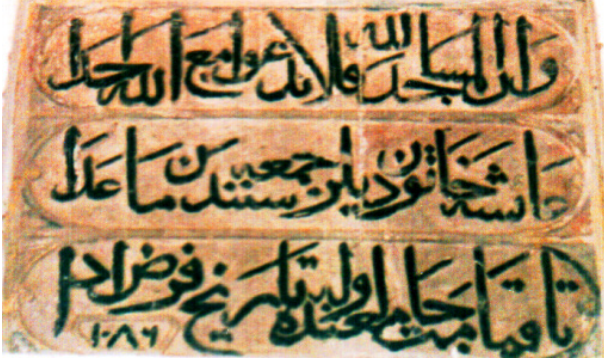 وان المساجد لله فلا تدعوا مع الله احدا
عائشه خاتون ديلر جمعه سنندن ما عدا
تا قيامت جامعنده اوله تاريخ فرض ادا
١٠٨٦